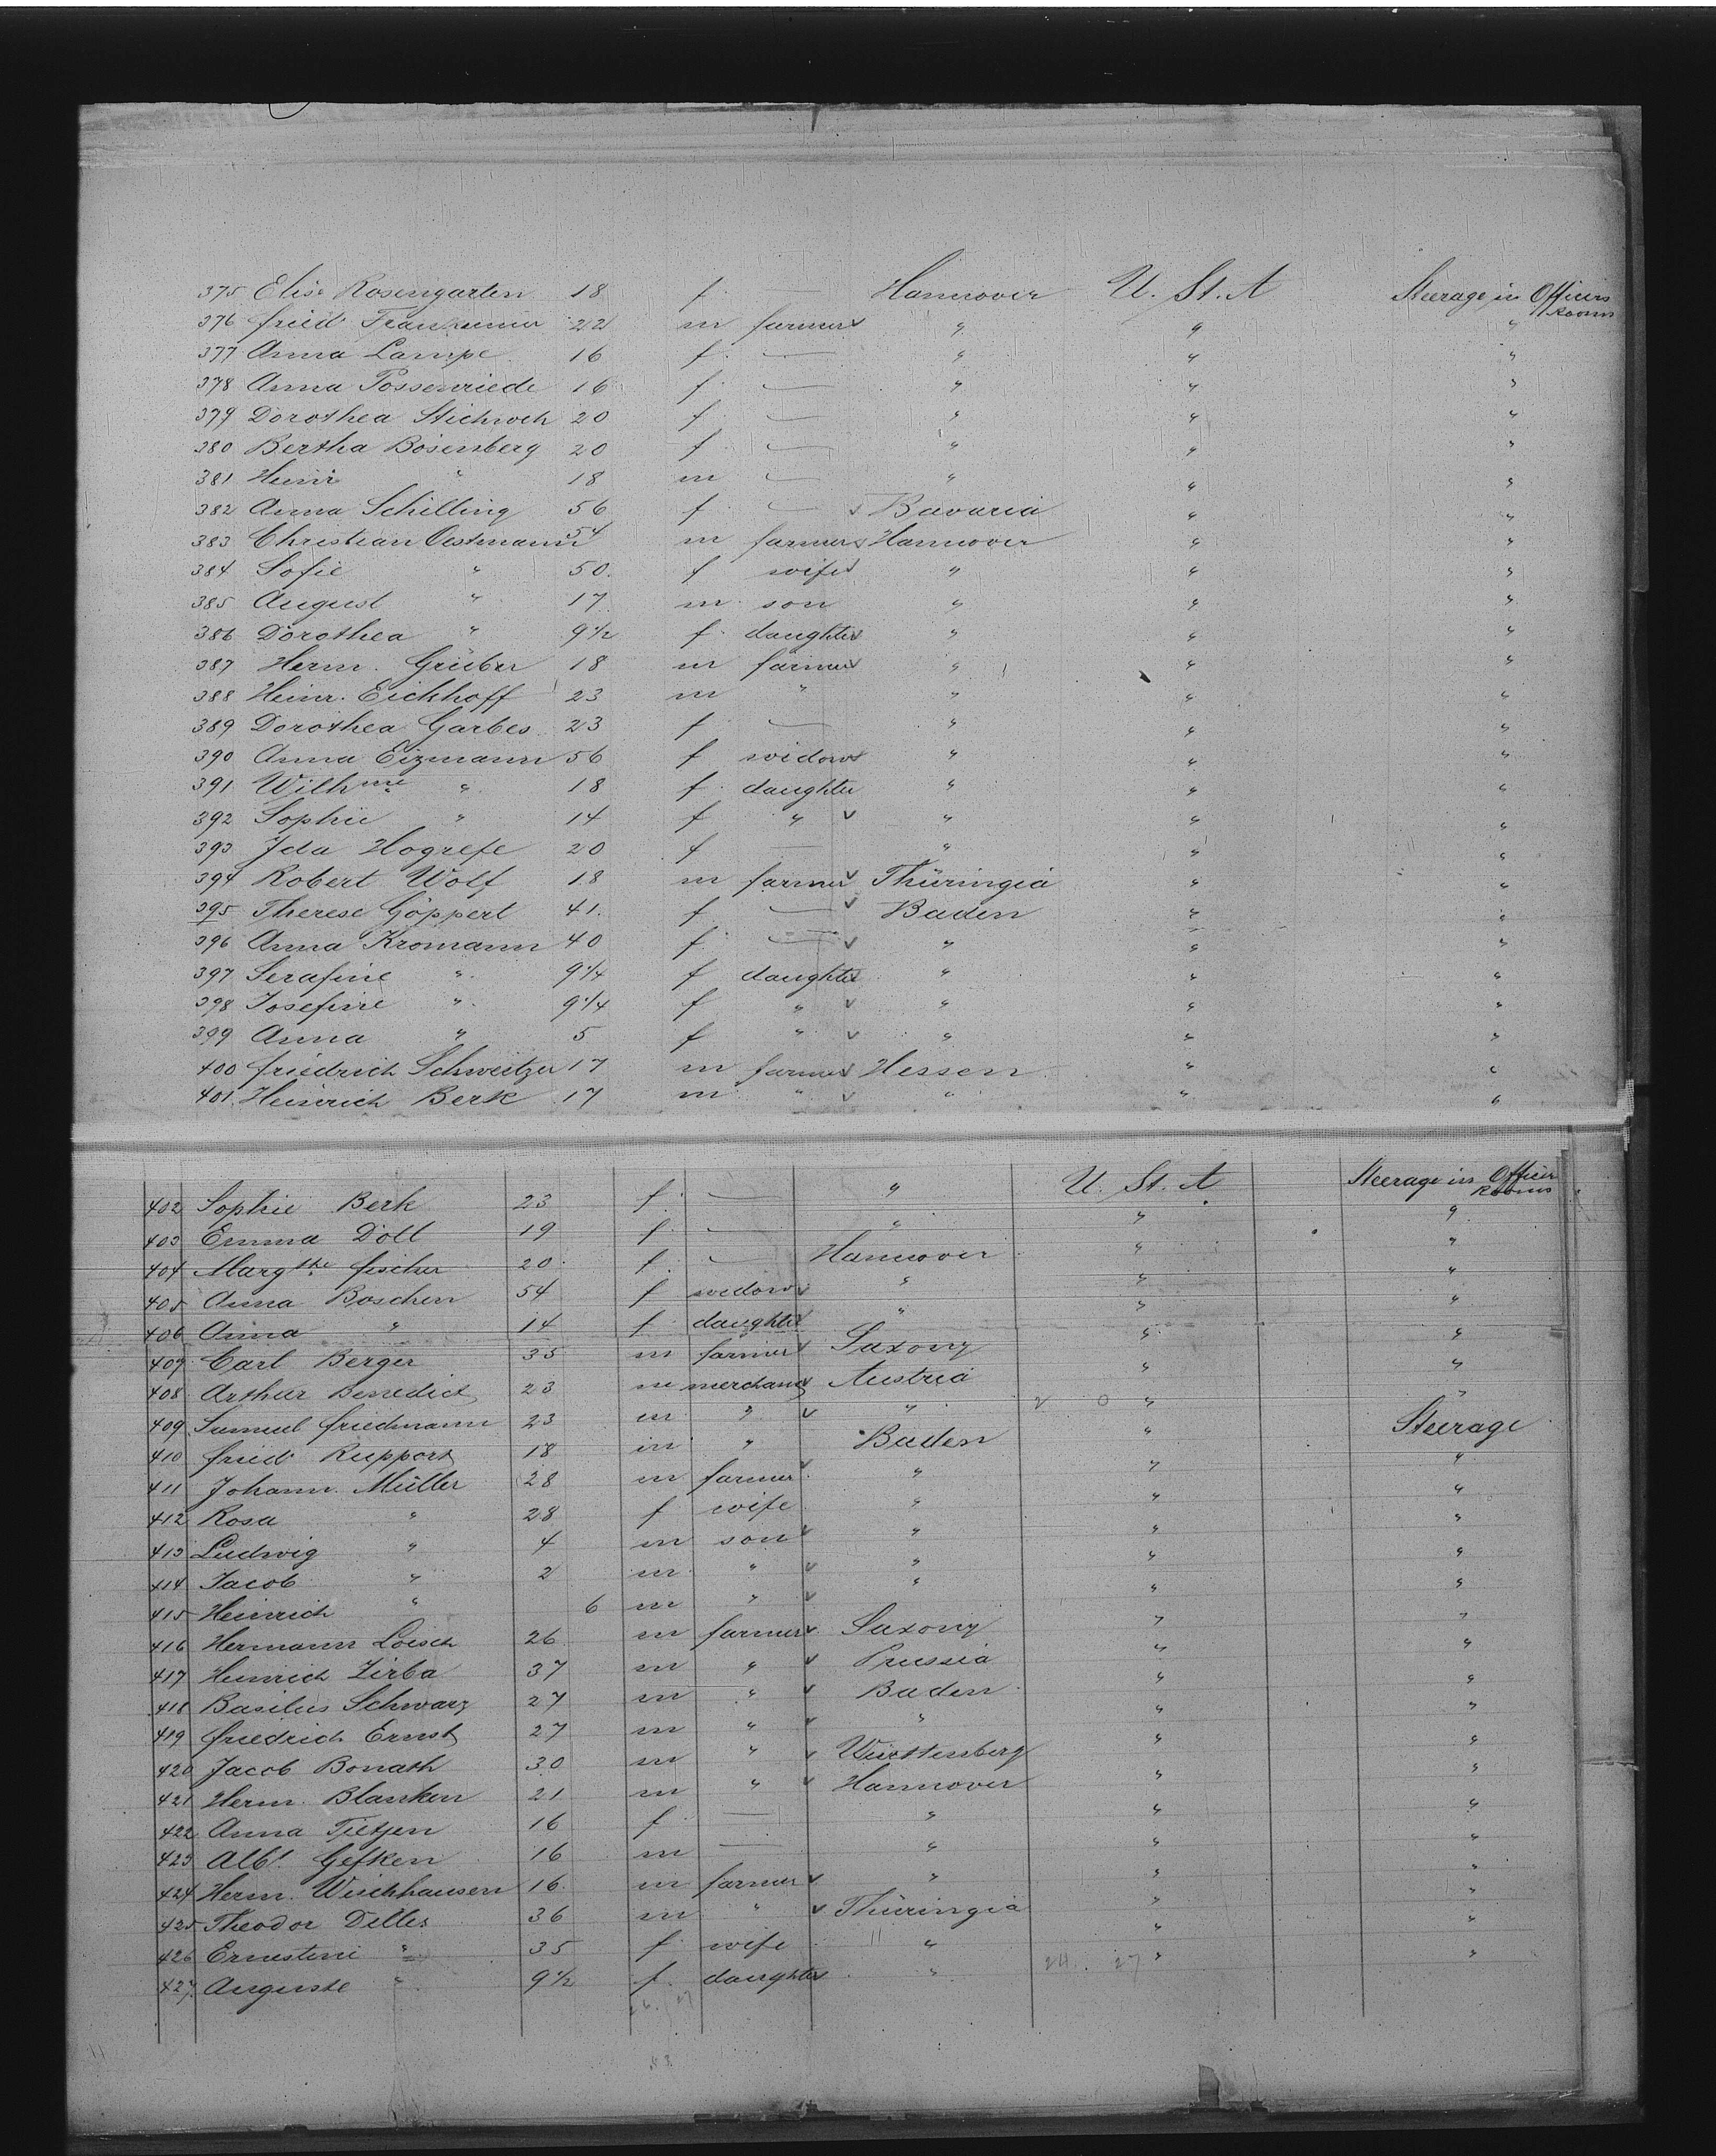 375 Elise Rosengarten 18 f — Hannover U. St. A Steerage in Officers Rooms
376 Fried 22 m farmer " " "
377 Anna Lampe 16 f — " " "
378 Anna Possenriede 16 f — " " "
379 Dorothea 20 f — " " "
380 Bertha Bosenberg 20 f — " " "
381 Heinr " 18 m — " " "
382 Anna Schilling 56 f — Bavaria " "
383 Christian Oestmann 54 m farmer Hannover " "
384 Sofie " 50 f wife " " "
385 August " 17 m son " " "
386 Dorothea " 9 1/2 f daughter " " "
387 Herm. Grüber 18 m farmer " " "
388 Heinr. Eickhoff 23 m " " " "
389 Dorothea Garbes 23 f — " " "
390 Anna Eizmann 56 f widow " " "
391 Wilhme " 18 f daughter " " "
392 Sophie " 14 f " " " "
393 Ida Hogrefe 20 f — " " "
394 Robert Wolf 18 m farmer Thüringia " "
395 Therese Göppert 41 f — Baden " "
396 Anna Kromann 40 f — " " "
397 Serafine " 9 1/4 f daughter " " "
398 Josefine " 9 1/4 f " " " "
399 Anna " 5 f " " " "
400 Friedrich Schweitzer 17 m farmer Hessen " "
401 Heinrich Berk 17 m " " " "
402 Sophie Berk 23 f — " U. St. A Steerage in Officer Rooms
403 Emma Döll 19 f — " " "
404 Margthe Fischer 20 f — Hannover " "
405 Anna Boschen 54 f widow " " "
406 Anna " 14 f daughter " " "
407 Carl Berger 35 m farmer Saxony " "
408 Arthur Benedict 23 m merchant Austria " "
409 Samuel Friedmann 23 m " " " "
410 Fried Ruppert 18 m " Baden " Steerage
411 Johann Müller 28 m farmer " " "
412 Rosa " 28 f wife " " "
413 Ludwig " 4 m son " " "
414 Jacob " 2 m " " " "
415 Heinrich " 6 m " " " "
416 Hermann Loesch 26 m farmer Saxony " "
417 Heinrich Zirba 37 m " Prussia " "
418 Basilus Schwarz 27 m " Baden " "
419 Friedrich Ernst 27 m " " " "
420 Jacob Bonath 30 m " Württemberg " "
421 Herm. Blanken 21 m " Hannover " "
422 Anna Tietjen 16 f — " " "
423 Albt. Gefken 16 m — " " "
424 Herm. Wischhausen 16 m farmer " " "
425 Theodor Delles 36 m " Thüringia " "
426 Ernestine " 35 f wife " " "
427 Auguste " 9 1/2 f daughter " " "